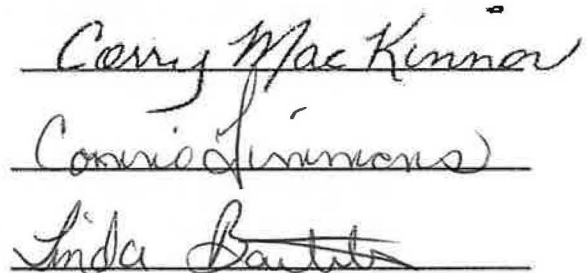 Corry MacKinnon
Connie Simmons
Linda